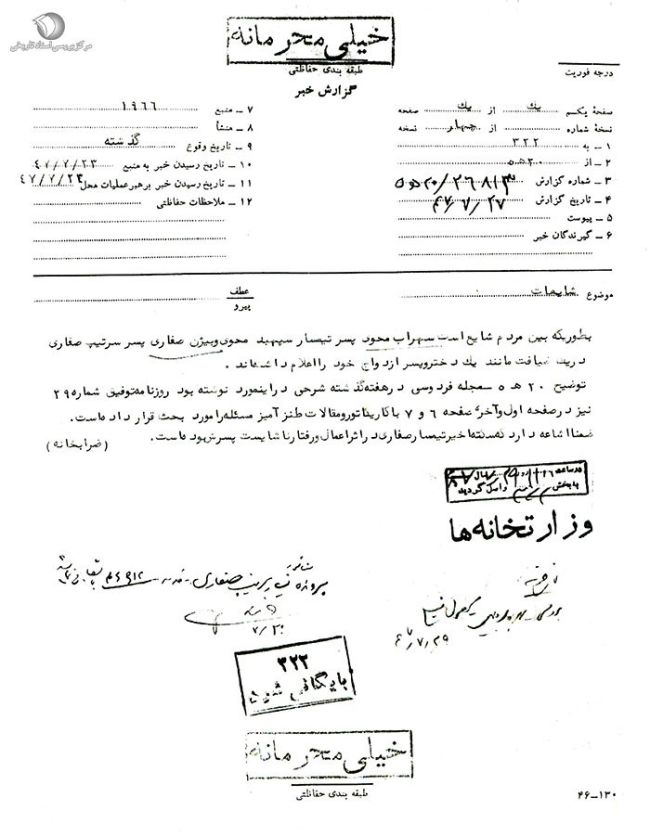 مرکز بررسی اسناد تاریخی
خیلی محرمانه
طبقه بندی حفاظتی
گزارش خبر
درجه فوریت
صفحهٔ یکم از یک صفحه
نسخهٔ شماره از چهار نسخه
۱ ـ به ۳۲۲
۲ ـ از ۲۰ ه ۵
۳ ـ شماره گزارش ۲۶۸۱۳/۲۰ ه ۵
۴ ـ تاریخ گزارش ۴۷/۷/۲۷
۵ ـ پیوست
۶ ـ گیرندگان خبر
۷ ـ منبع ۱۹۶۶
۸ ـ منشأ
۹ ـ تاریخ وقوع گذشته
۱۰ ـ تاریخ رسیدن خبر به منبع ۴۷/۷/۲۳
۱۱ ـ تاریخ رسیدن خبر برهبر عملیات محل ۴۷/۷/۲۳
۱۲ ـ ملاحظات حفاظتی
موضوع شایعات
عطف
پیرو
بطوریکه بین مردم شایع است سهراب محوی پسر تیمسار سپهبد محوی وبیژن صفاری پسر سرتیپ صفاری
در یک ضیافت مانند یک دختروپسر ازدواج خود را اعلام داشته‌اند.
توضیح ۲۰ ه ۵ مجله فردوسی در هفته گذشته شرحی در اینمورد نوشته بود روزنامه توفیق شماره ۲۹
نیز در صفحه اول و آخر صفحه ۶ و ۷ با کاریکاتور و مقالات طنز آمیز مسئله را مورد بحث قرار داده است.
ضمنا اشاعه دارد که سکته اخیر تیمسار صفاری در اثر اعمال و رفتار ناشایست پسرش بوده است. (ضرابخانه)
در ساعت
به بخش واصل گردید
وزارتخانه‌ها
۴۷/۷/۲۹
۷/۳۰
۳۲۲
بایگانی شود
خیلی محرمانه
طبقه بندی حفاظتی
۴۶-۱۳۰